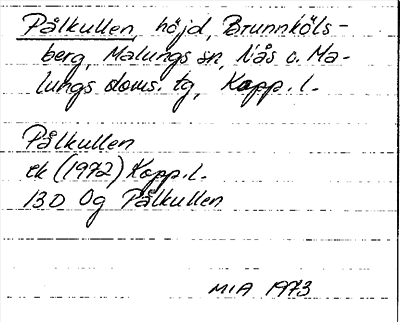 Pålkullen, höjd, Brunnköls-
berg, Malungs sn, Nås o. Ma-
lungs doms. tg, Kopp. l.
Pålkullen
ek (1972) Kopp. l.
13D 0g Pålkullen
MIA 1973